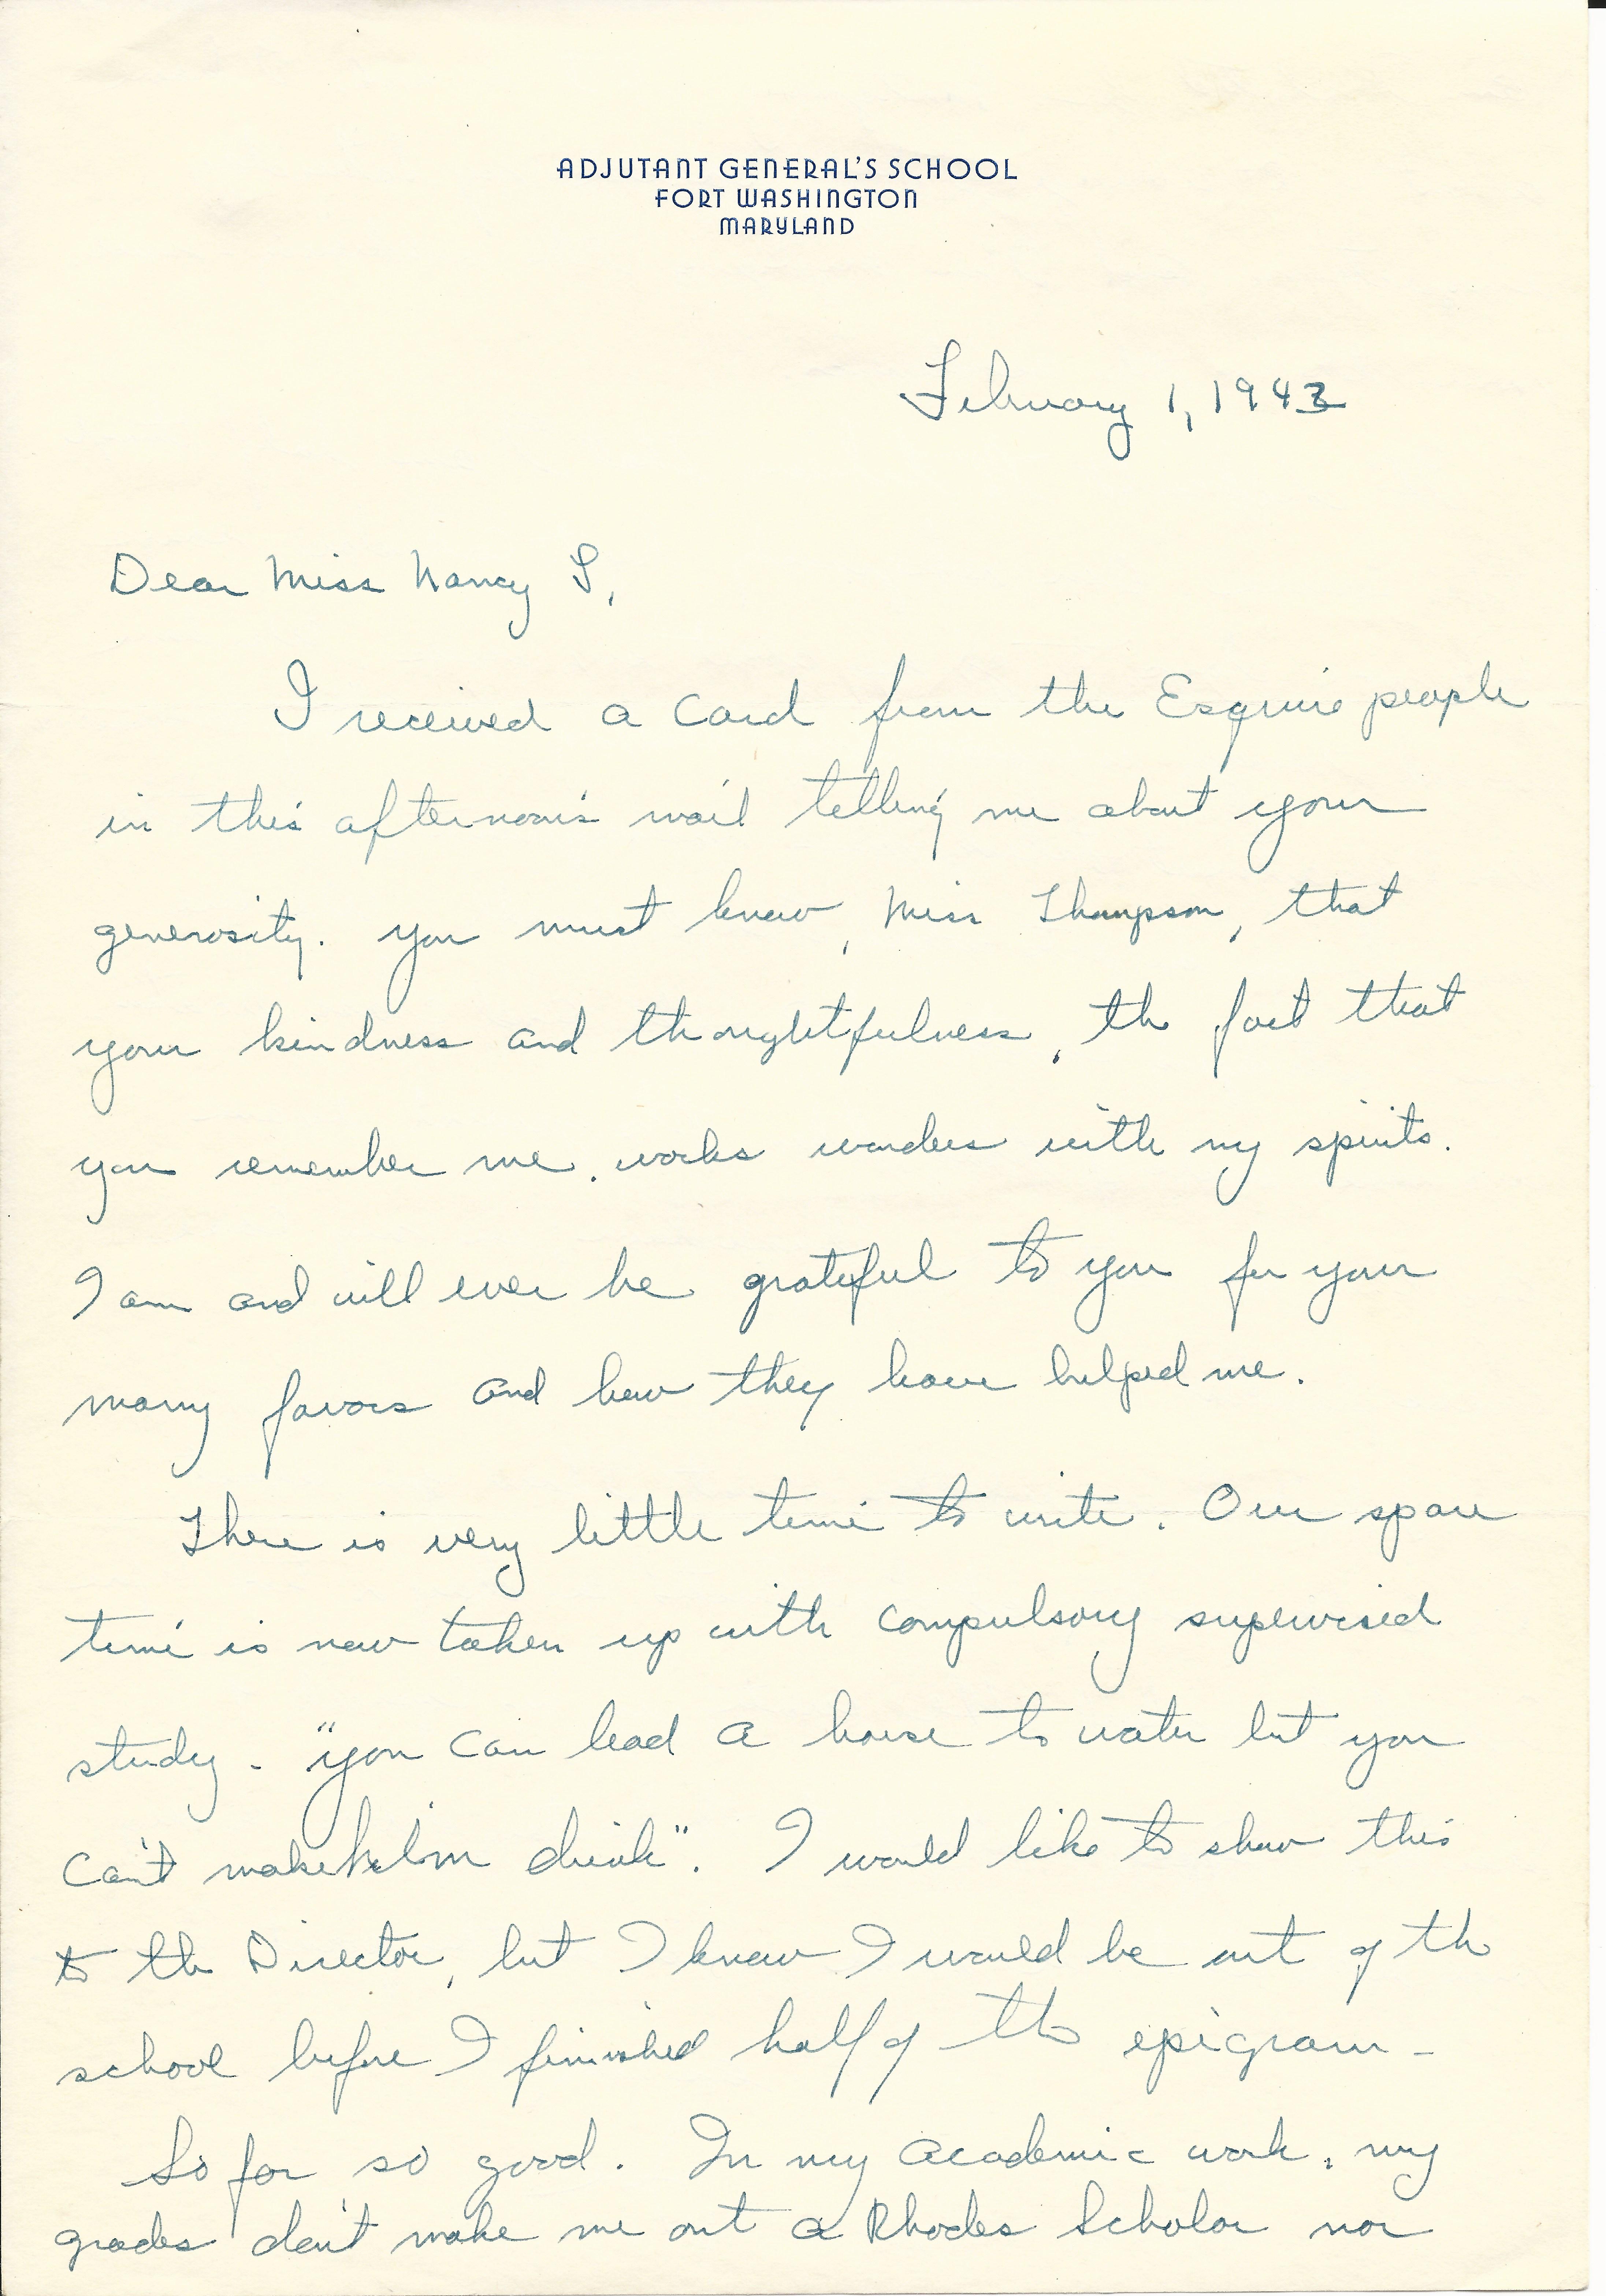 ADJUTANT GENERAL'S SCHOOL
FORT WASHINGTON
MARYLAND
February 1, 1943
Dear Miss Nancy T,
I received a card from the Esquire people
in this afternoon's mail telling me about your
generosity. You must know, Miss Thompson, that
your kindness and thoughtfulness, the fact that
you remember me, works wonders with my spirits.
I am and will ever be grateful to you for your
many favors and how they have helped me.
There is very little time to write. Our spare
time is now taken up with compulsory supervised
study. "You can lead a horse to water but you
can't make him drink". I would like to show this
to the Director, but I know I would be out of the
school before I finished half of the epigram.
So far so good. In my academic work, my
grades don't make me out a Rhodes Scholar nor